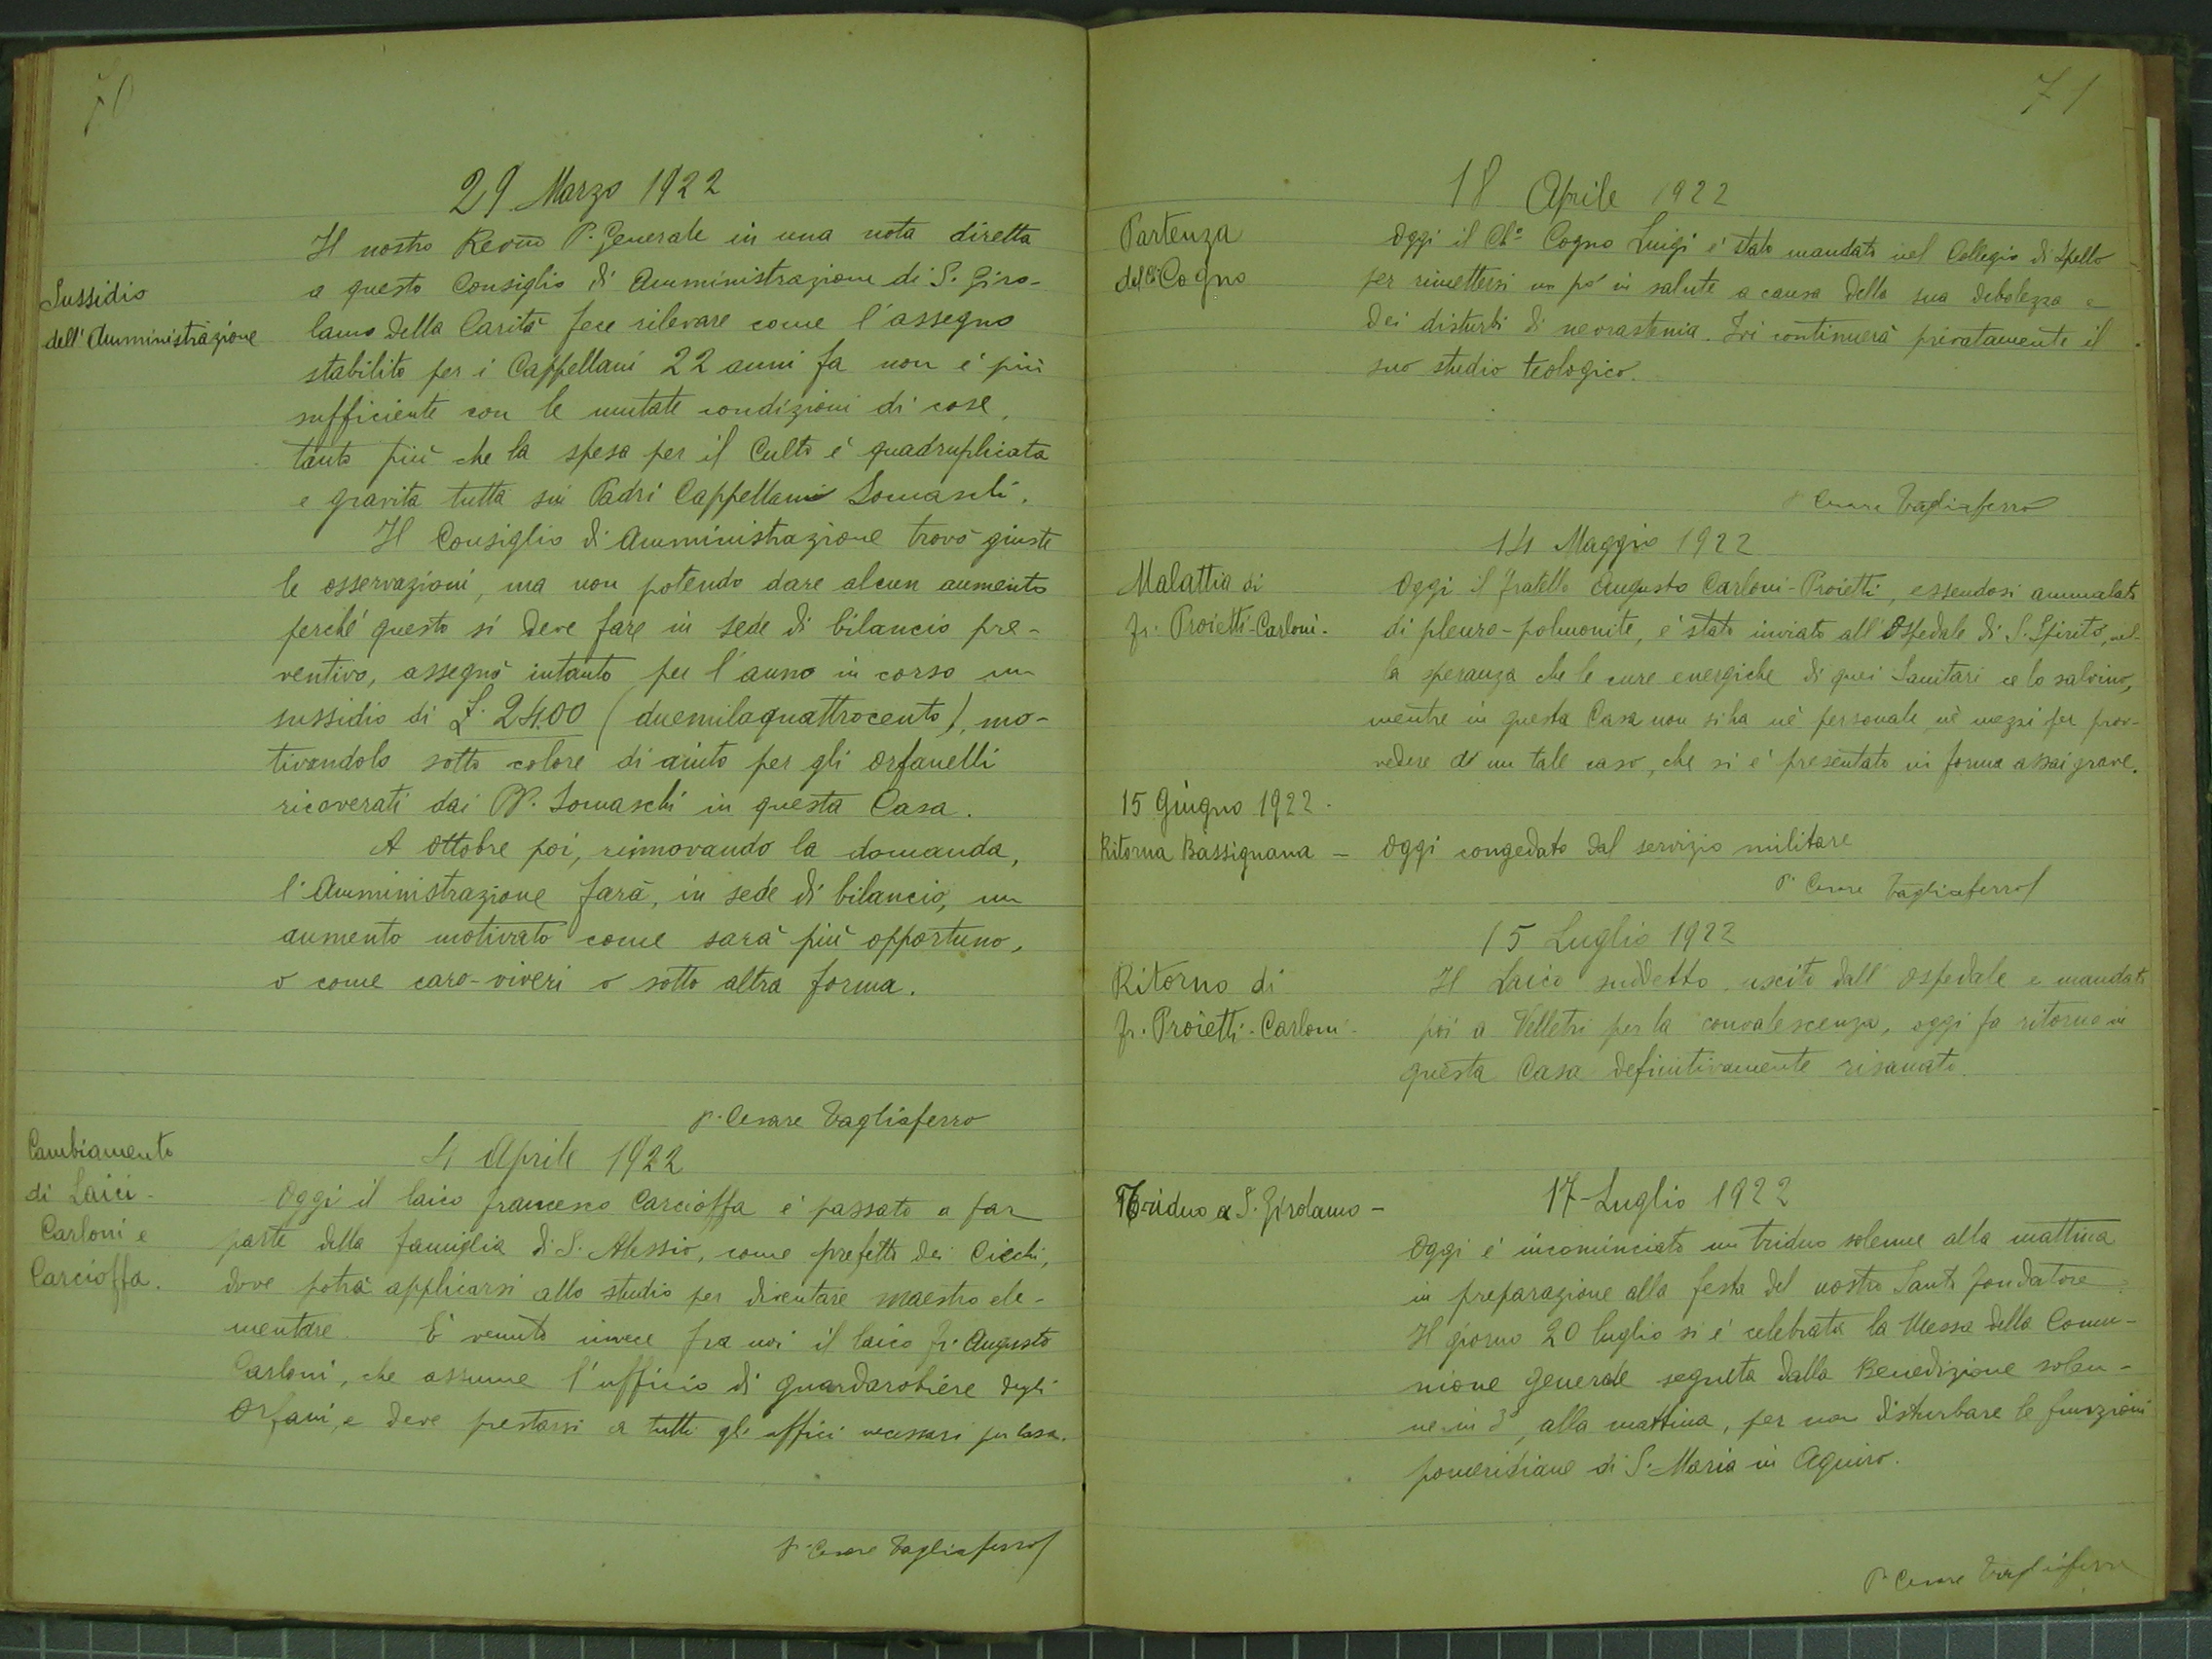 70
29 Marzo 1922
Sussidio
dell'Amministrazione
Il nostro Revmo P. Generale in una nota diretta
a questo Consiglio di Amministrazione di S. Giro-
lamo della Carità fece rilevare come l'assegno
stabilito per i Cappellani 22 anni fa non è più
sufficiente con le mutate condizioni di cose,
tanto più che la spesa per il Culto è quadruplicata
e gravita tutta sui Padri Cappellani Somaschi.
Il Consiglio di Amministrazione trovò giuste
le osservazioni, ma non potendo dare alcun aumento
perché questo si deve fare in sede di bilancio pre-
ventivo, assegnò intanto per l'anno in corso un
sussidio di £. 2400 (duemilaquattrocento), mo-
tivandolo sotto colore di aiuto per gli orfanelli
ricoverati dai PP. Somaschi in questa Casa.
A Ottobre poi, rinnovando la domanda,
l'Amministrazione farà, in sede di bilancio, un
aumento motivato come sarà più opportuno,
o come caro-viveri o sotto altra forma.
P. Cesare Tagliaferro
4 Aprile 1922
Cambiamento
di Laici -
Carloni e
Carcioffa.
Oggi il laico Francesco Carcioffa è passato a far
parte della famiglia di S. Alessio, come prefetto dei Ciechi,
dove potrà applicarsi allo studio per diventare maestro ele-
mentare. È venuto invece fra noi il laico Fr. Augusto
Carloni, che assume l'ufficio di guardarobiere degli
Orfani, e deve prestarsi a tutti gli uffici necessari per casa.
P. Cesare Tagliaferro
71
18 Aprile 1922
Partenza
del Ch. Cogno
Oggi il Cho Cogno Luigi è stato mandato nel Collegio di Spello
per rimettersi un pò in salute a causa della sua debolezza e
dei disturbi di nevrastenia. Ivi continuerà privatamente il
suo studio teologico.
P. Cesare Tagliaferro
14 Maggio 1922
Malattia di
Fr. Proietti-Carloni.
Oggi il fratello Augusto Carloni-Proietti, essendosi ammalato
di pleuro-polmonite, è stato inviato all'Ospedale di S. Spirito, nel-
la speranza che le cure energiche di quei Sanitari ce lo salvino,
mentre in questa Casa non si ha nè personale, nè mezzi per prov-
vedere di un tale caso, che si è presentato in forma assai grave.
15 Giugno 1922.
Ritorna Bassignana - Oggi congedato dal servizio militare
P. Cesare Tagliaferro
15 Luglio 1922
Ritorno di
Fr. Proietti-Carloni
Il Laico suddetto, uscito dall'ospedale e mandato
poi a Velletri per la convalescenza, oggi fa ritorno in
questa Casa definitivamente risanato.
17 Luglio 1922
Triduo a S. Girolamo -
Oggi è incominciato un triduo solenne alla mattina
in preparazione alla festa del nostro Santo Fondatore.
Il giorno 20 luglio si è celebrata la Messa della Comu-
nione generale seguita dalla Benedizione solen-
ne in 3°, alla mattina, per non disturbare le funzioni
pomeridiane di S. Maria in Aquiro.
P. Cesare Tagliaferro